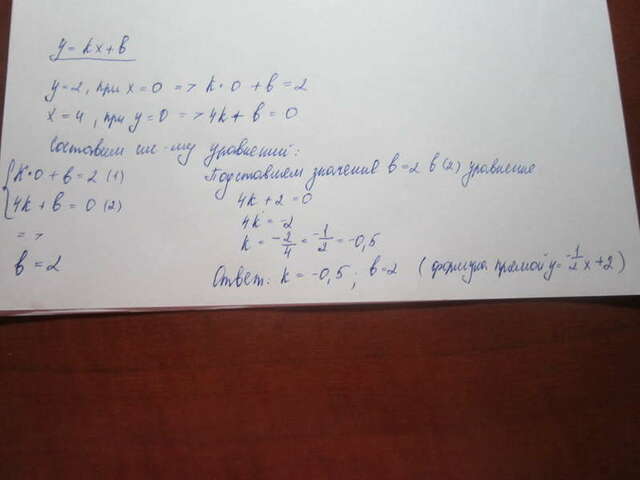 y = kx + b
y = 2, при x = 0 => k · 0 + b = 2
x = 4, при y = 0 => 4k + b = 0
Составим сис-му уравнений:
{ k · 0 + b = 2 (1)
4k + b = 0 (2)
=>
b = 2
Подставляем значение b = 2 в (2) уравнение
4k + 2 = 0
4k = -2
k = -2/4 = -1/2 = -0,5
Ответ: k = -0,5; b = 2 (формула прямой y = -1/2 x + 2)